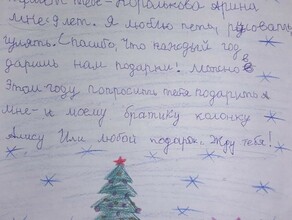 тебе Коралькова Арина
мне 9 лет. Я люблю петь, рисовать
гулять. Спасибо, что каждый год
даришь нам подарки! Можно в
этом году попросить тебя подарить
мне и моему братику колонку
Алису Или любой подарок. Жду тебя!